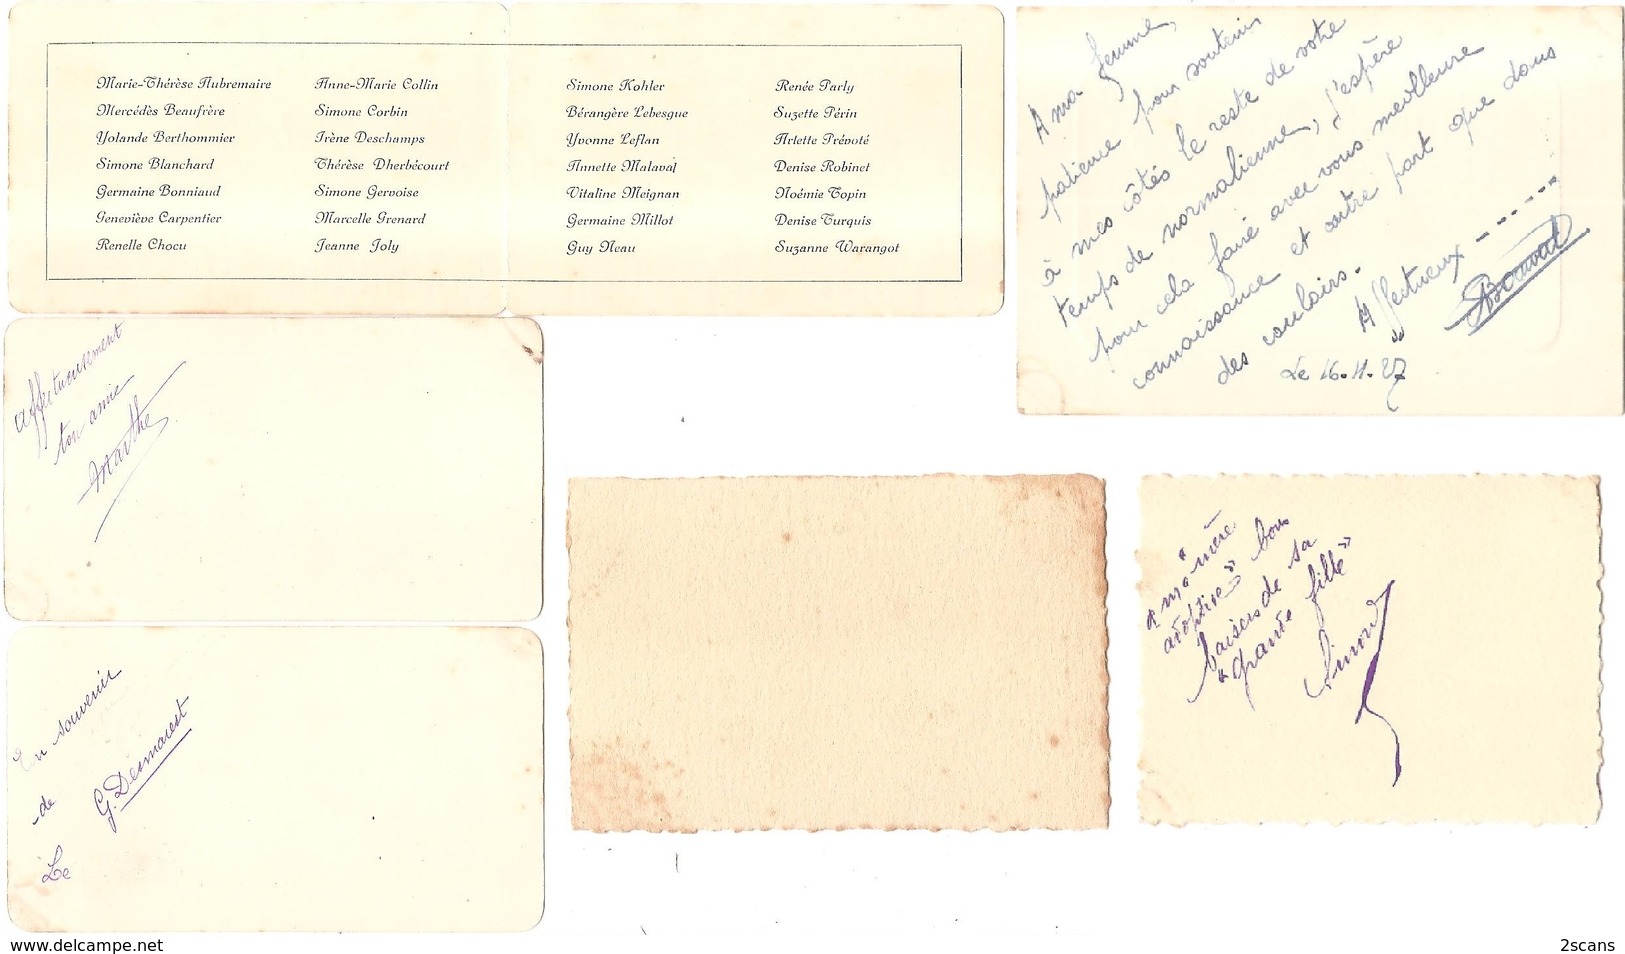 Marie-Thérèse Aubremaire
Mercédès Beaufrère
Yolande Berthommier
Simone Blanchard
Germaine Bonniaud
Geneviève Carpentier
Renelle Chocu
Anne-Marie Collin
Simone Corbin
Irène Deschamps
Thérèse Dherbécourt
Simone Gervoise
Marcelle Grenard
Jeanne Joly
Simone Kohler
Bérangère Lebesgue
Yvonne Leflan
Annette Malaval
Vitaline Meignan
Germaine Millot
Guy Neau
Renée Parly
Suzette Périn
Arlette Prévoté
Denise Robinet
Noémie Topin
Denise Turquis
Suzanne Warangot
A ma femme,
patience pour soutenir
à mes côtés le reste de votre
temps de normalienne, j'espère
pour cela faire avec vous meilleure
connaissance et autre part que dans
des couloirs.
Affectueux -----
Le 16.11.37
Affectueusement
ton amie
Marthe
En souvenir
de
G. Desmarest
Le
"mà mère
adoptive" bons
baisers de sa
"grande fille"
www.delcampe.net
2scans